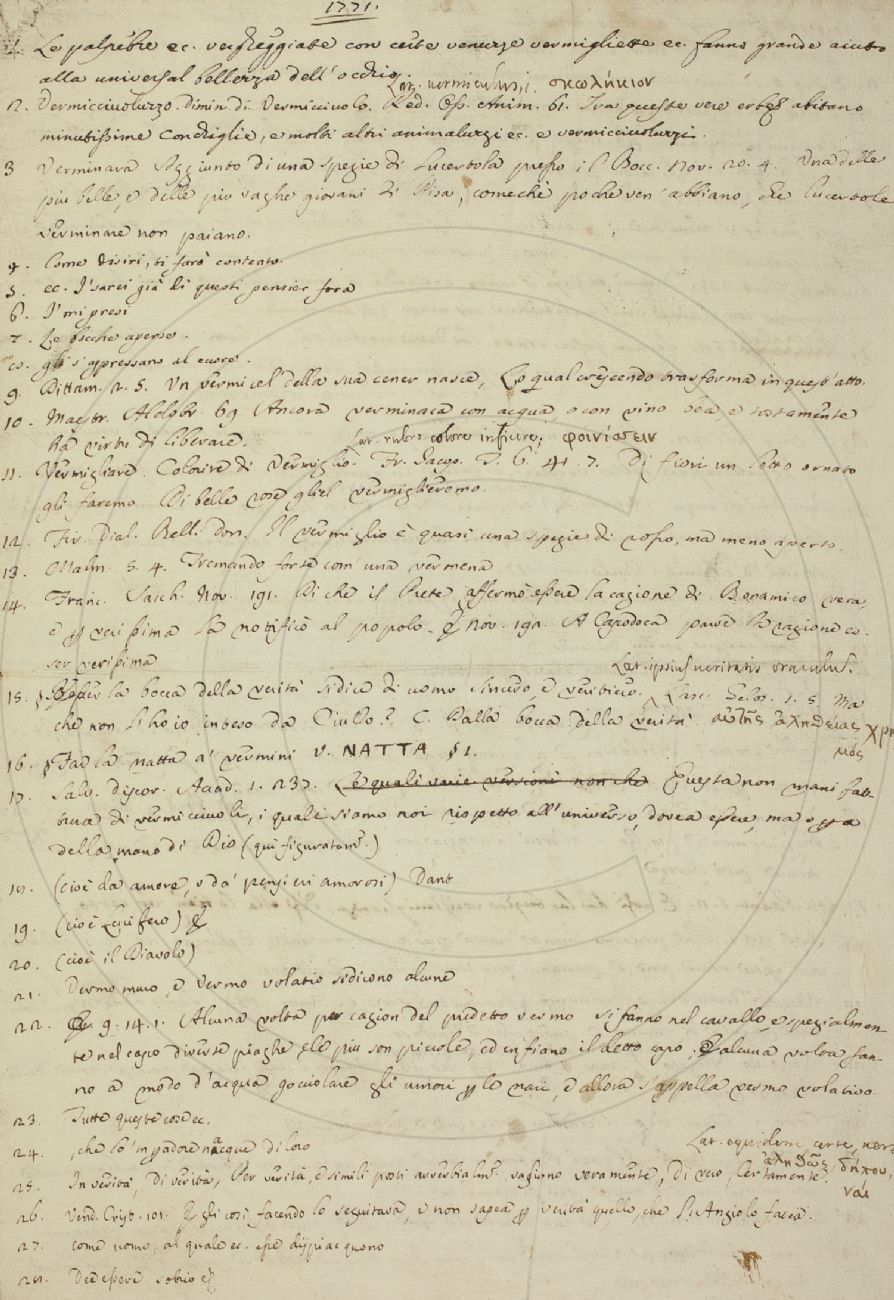 1771.
1. Le palpebre ec. vergheggiate con certe venuzze vermigliette ec. fanno grande aiuto
alla universal bellezza dell'occhio.
Lat. vermiculus, i. σκωλήκιον
2. Vermicciuoluzzo. Dimin. di Vermicciuolo. Red. Oss. Anim. 61. Tra queste vere erbe abitano
minutissime conchiglie, e molti altri animaluzzi ec. e vermicciuoluzzi.
3 Verminara Aggiunto di una spezie di Lucertola presso il Bocc. Nov. 20. 4. Una delle
più belle, e delle più vaghe giovani di Pisa, comechè poche ven'abbiano, che lucertole
verminare non paiano.
4. Come disiri, ti farò contento.
5. ec. I' sarei già di questi pensier fora
6. I' mi presi
7. Le bocche aperse.
gli s'appressano al cuore.
9. Dittam. 2. 5. Un vermicel della sua cener nasce, Lo qual crescendo trasforma in quest'atto.
10. Maestr. Aldobr. 69. Ancora verminaca con acqua, o con vino bea, e tostamente
hà virtù di liberare.
Lat. rubro colore inficere, φοινίσσειν
11. Vermigliare. Colorire di Vermiglio. Fr. Iacop. T. 6. 41. 7. Di fiori un letto ornato
gli faremo Di belle rose gliel vermiglieremo.
12. Fir. Dial. Bell. Don. Il vermiglio è quasi una spezie di rosso, ma meno aperto.
13. Malm. 5. 4. Tremando forte com una vermena
14. Franc. Sacch. Nov. 191. Di che il Prete affermò essere la cagione di Bonamico vera
e verissima la notificò al popolo. E nov. 192. A Capodoca parve la ragione es-
ser verissima
Lat. ipsius veritatis oraculum.
15. § Esser la bocca della verità si dice di uomo sincero, e veritiero. Lasc. Gelos. 1. 5. Ma
che non l'ho io inteso da Ciullo? C. Dalla bocca della verità. αὐτῆς ἀληθείας χρη
σμός
16. § Far la natta a' vermini V. NATTA § 1.
17. Salv. discor. Accad. 1. 237. Le quali varie versioni non che Questa non mani fatt-
tura di vermicciuoli, i quali siamo noi rispetto all'universo, dovea essere, ma opra
della mano di Dio (qui figuratam.)
18. (cioè da amore, o da' pensieri amorosi) Dant
19. (cioè Lucifero)
20. (cioè il Diavolo)
21. Vermo muro, e Vermo volatio si dicono alcune
22. Cr. 9. 14. 1. Alcuna volta per cagion del predetto vermo si fanno nel cavallo, e spezialmen-
te nel capo diverse piaghe, e le più son piccole, ed enfiano il detto capo. E alcuna volta fan-
no a modo d'acqua gocciolare gli umori per le nari, e allora s'appella vermo volativo.
23. Tutte queste cose ec.
24. , che lo 'mpadore nacque di loro
Lat. equidem, certe, nera
25. In verità, Di verità, Per verità, e simili posti avverbialm. vagliono veramente, Di vero, Certamente. ἀληθῶς, δήπου,
ναί
26. Vend. Crist. 101. E gli così facendo lo seguitava, e non sapea per verità quello, che l'Angiolo facea.
27. come uomo, al quale ec. esse dispiacquono
28. Dee essere sobrio